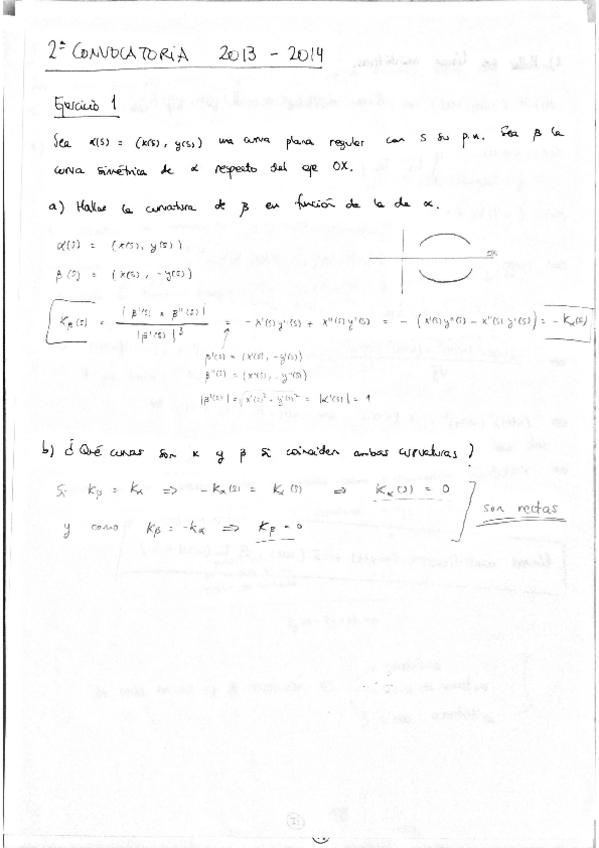 2ª CONVOCATORIA 2013 - 2014
Ejercicio 1
Sea α(s) = (x(s), y(s)) una curva plana regular con s su p.n. Sea β la
curva simétrica de α respecto del eje OX.
a) Hallar la curvatura de β en función de la de α.
α(s) = (x(s), y(s))
OX
β(s) = (x(s), -y(s))
K_β(s) = |β'(s) x β''(s)| / |β'(s)|³ = -x'(s)y''(s) + x''(s)y'(s) = -(x'(s)y''(s) - x''(s)y'(s)) = -K_α(s)
β'(s) = (x'(s), -y'(s))
β''(s) = (x''(s), -y''(s))
|β'(s)| = √x'(s)² - y'(s)² = |α'(s)| = 1
b) ¿Qué curvas son α y β si coinciden ambas curvaturas?
Si K_β = K_α => -K_α(s) = K_α(s) => K_α(s) = 0
son rectas
y como K_β = -K_α => K_β = 0